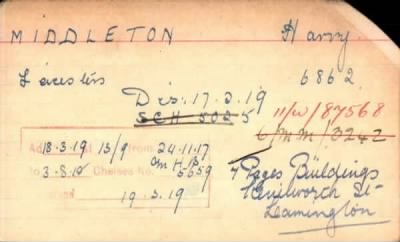 MIDDLETON Harry
Leicesters 6862
Dis: 17.3.19
SCH 5025 11/W/87568
6/MM/3242
18.3.19 13/9 24.11.17
to 3-8- Chelsea No. 5659
4 Pages Buildings
Kenilworth St-
Leamington
19.3.19